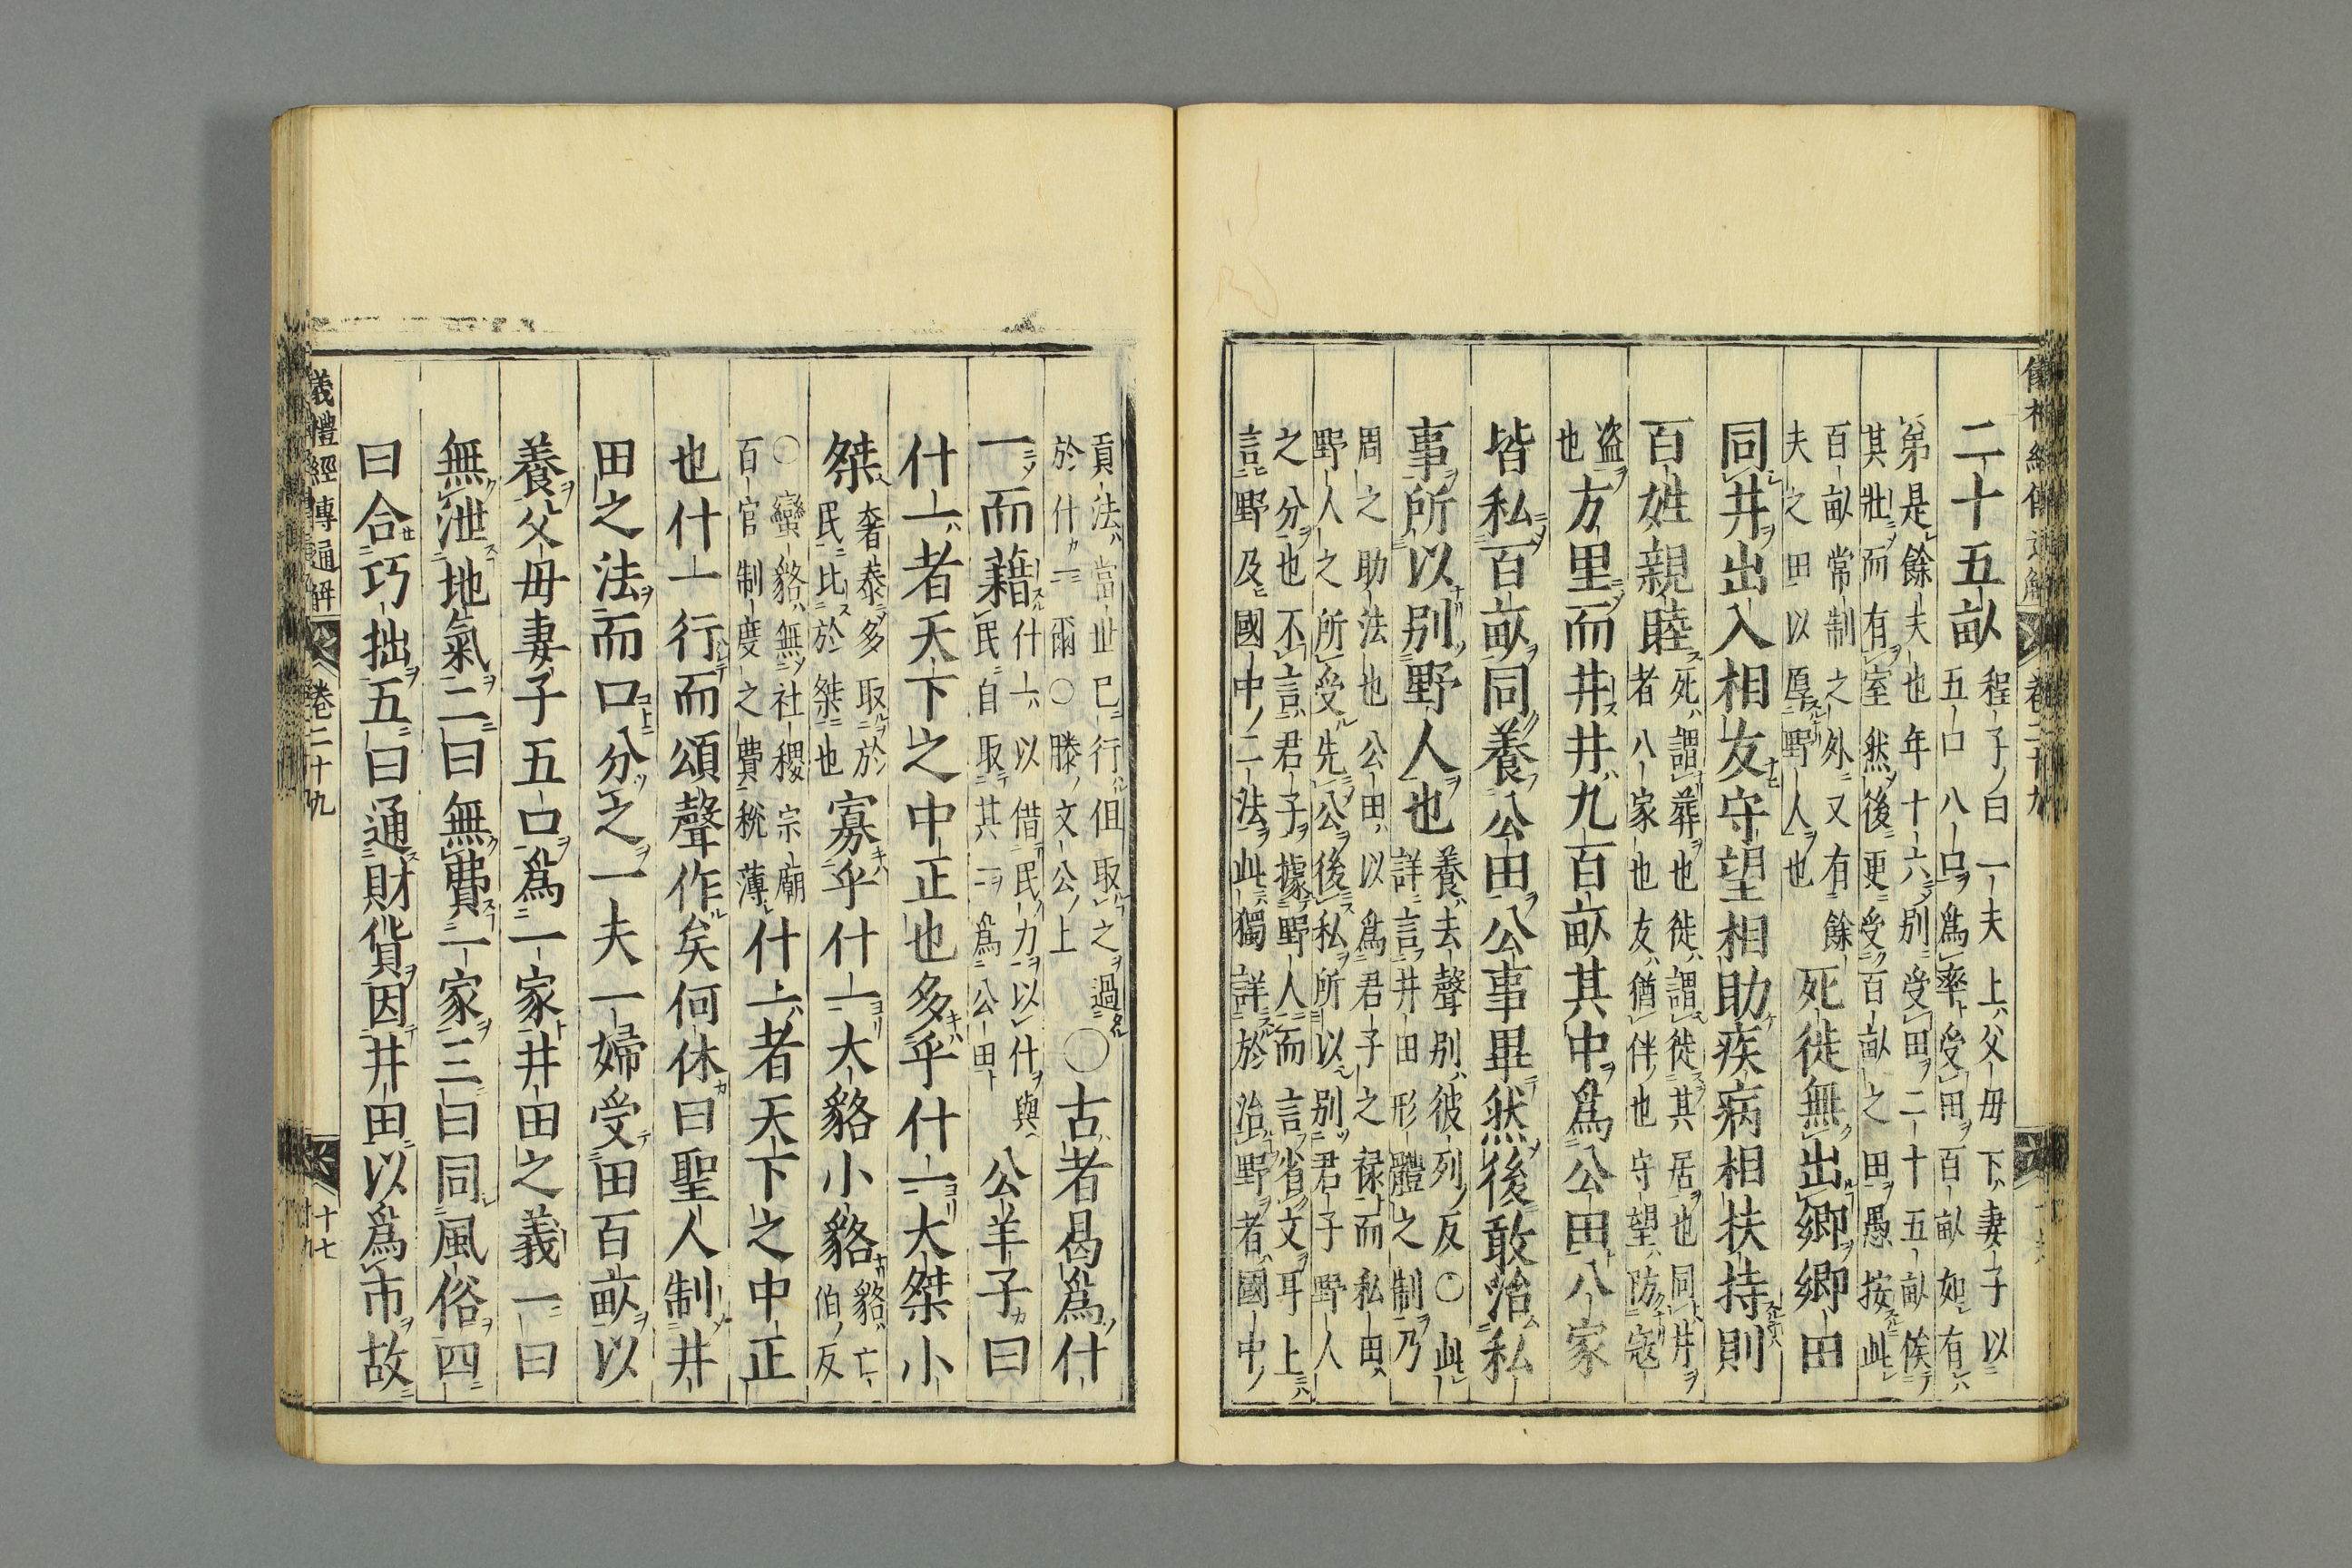 二十五畝
程子曰一夫上父母下妻子以
五口八口爲率受田百畝如有
弟是餘夫也年十六別受田二十五畝俟
其壯而有室然後更受百畝之田愚按此
百畝常制之外又有餘
夫之田以厚野人也
死徙無出鄉鄉田
同井出入相友守望相助疾病相扶持則
百姓親睦
死謂葬也徙謂徙其居也同井
者八家也友猶伴也守望防寇
盗
也
方里而井井九百畝其中爲公田八家
皆私百畝同養公田公事畢然後敢治私
事所以別野人也
養去聲別彼列反○此
詳言井田形體之制乃
周之助法也公田以爲君子之禄而私田
野人之所受先公後私所以別君子野人
之分也不言君子據野人而言省文耳上
言野及國中二法此獨詳於治野者國中
貢法當世已行但取之過
於什一爾○滕文公上
○古者曷爲什
一而藉
什一以借民力以什與
民自取其一爲公田
公羊子曰
什一者天下之中正也多乎什一大桀小
桀
奢泰多取於
民比於桀也
寡乎什一大貉小貉
貉亡
伯反
○蠻貉無社稷宗廟
百官制度之費稅薄
什一者天下之中正
也什一行而頌聲作矣何休曰聖人制井
田之法而口分之一夫一婦受田百畝以
養父母妻子五口爲一家井田之義一曰
無泄地氣二曰無費一家三曰同風俗四
曰合巧拙五曰通財貨因井田以爲市故
義禮經傳通解 卷二十九 十七